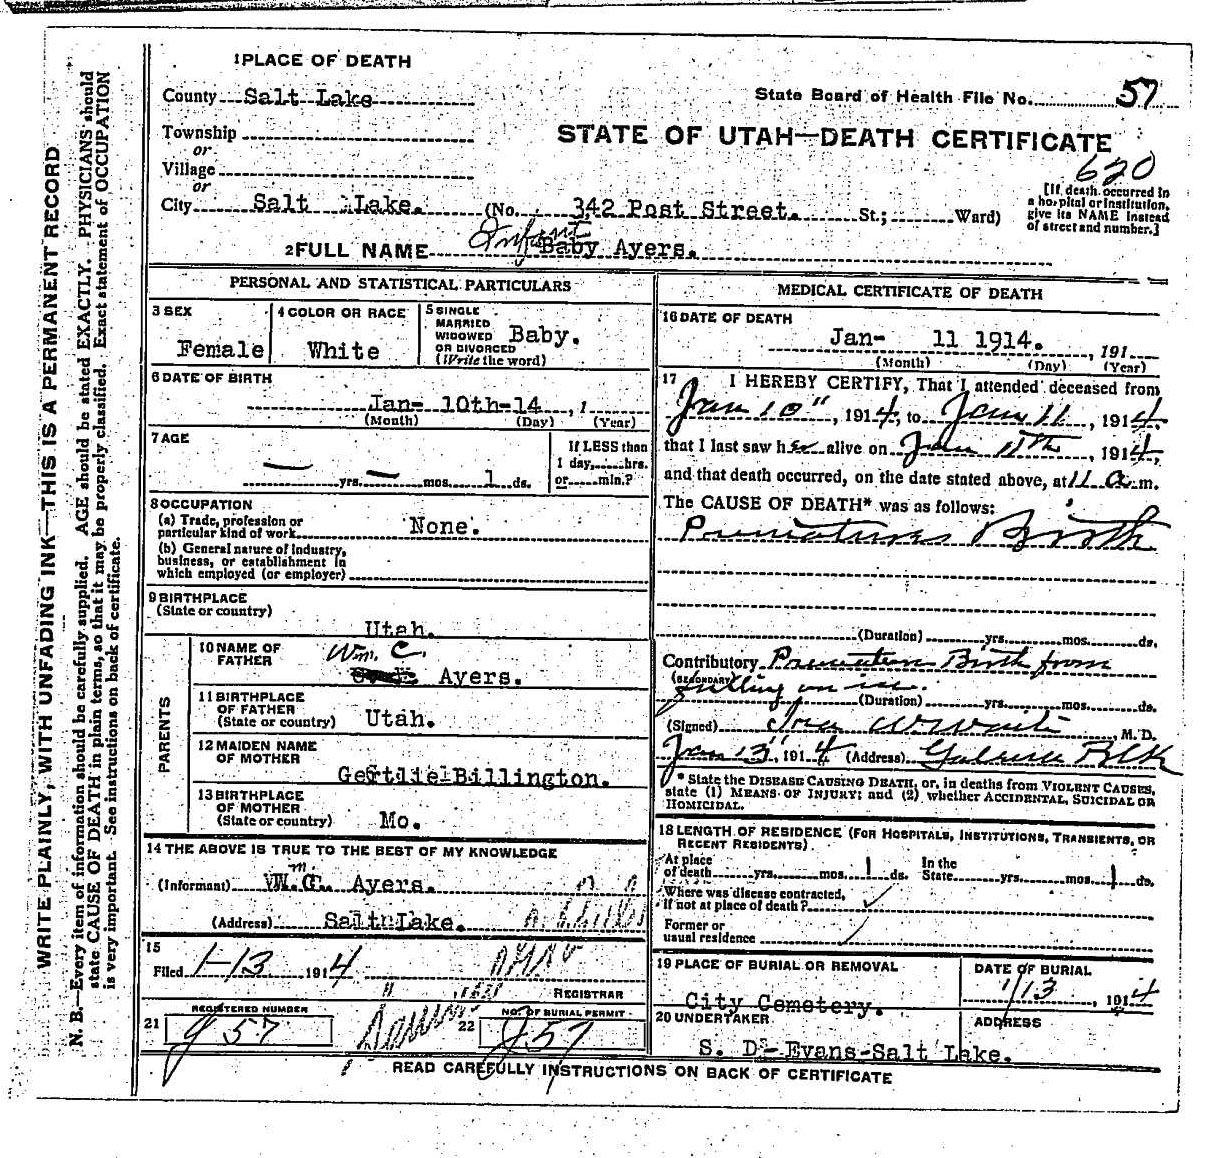 WRITE PLAINLY, WITH UNFADING INK—THIS IS A PERMANENT RECORD
N. B.—Every item of information should be carefully supplied. AGE should be stated EXACTLY. PHYSICIANS should
state CAUSE OF DEATH in plain terms, so that it may be properly classified. Exact statement of OCCUPATION
is very important. See instructions on back of certificate.
1 PLACE OF DEATH
County Salt Lake
State Board of Health File No. 57
Township
or
STATE OF UTAH—DEATH CERTIFICATE
Village
or
620
City Salt Lake. (No. 342 Post Street. St.; Ward)
[If death occurred in
a hospital or institution,
give its NAME instead
of street and number.]
2 FULL NAME Infant Baby Ayers.
PERSONAL AND STATISTICAL PARTICULARS
3 SEX
Female
4 COLOR OR RACE
White
5 SINGLE
MARRIED
WIDOWED
OR DIVORCED
(Write the word)
Baby.
6 DATE OF BIRTH
Jan- 10th-14 , 1
(Month) (Day) (Year)
7 AGE
— yrs. — mos. 1 ds.
If LESS than
1 day, hrs.
or min.?
8 OCCUPATION
(a) Trade, profession or
particular kind of work None.
(b) General nature of industry,
business, or establishment in
which employed (or employer)
9 BIRTHPLACE
(State or country)
Utah.
PARENTS
10 NAME OF
FATHER
Wm. C.
Ayers.
11 BIRTHPLACE
OF FATHER
(State or country) Utah.
12 MAIDEN NAME
OF MOTHER
Gertie Billington.
13 BIRTHPLACE
OF MOTHER
(State or country) Mo.
14 THE ABOVE IS TRUE TO THE BEST OF MY KNOWLEDGE
(Informant) Wm. C. Ayers.
(Address) Salt Lake.
15
Filed 1-13 1914
REGISTRAR
REGISTERED NUMBER
21 57
NO. OF BURIAL PERMIT
22 57
MEDICAL CERTIFICATE OF DEATH
16 DATE OF DEATH
Jan- 11 1914. , 191
(Month) (Day) (Year)
17 I HEREBY CERTIFY, That I attended deceased from
Jan 10", 1914, to Jan 11, 1914,
that I last saw her alive on Jan 11th, 1914,
and that death occurred, on the date stated above, at 11 a m.
The CAUSE OF DEATH* was as follows:
Premature Birth
(Duration) yrs. mos. ds.
Contributory Premature Birth from
(SECONDARY)
falling on ice.
(Duration) yrs. mos. ds.
(Signed) , M. D.
Jan 13", 1914 (Address)
* State the DISEASE CAUSING DEATH, or, in deaths from VIOLENT CAUSES,
state (1) MEANS OF INJURY; and (2) whether ACCIDENTAL, SUICIDAL OR
HOMICIDAL.
18 LENGTH OF RESIDENCE (FOR HOSPITALS, INSTITUTIONS, TRANSIENTS, OR
RECENT RESIDENTS).
At place
of death yrs. mos. 1 ds.
In the
State yrs. mos. 1 ds.
Where was disease contracted,
If not at place of death?
Former or
usual residence
19 PLACE OF BURIAL OR REMOVAL
City Cemetery.
DATE OF BURIAL
1/13, 1914
20 UNDERTAKER
S. D- Evans-Salt Lake.
ADDRESS
READ CAREFULLY INSTRUCTIONS ON BACK OF CERTIFICATE